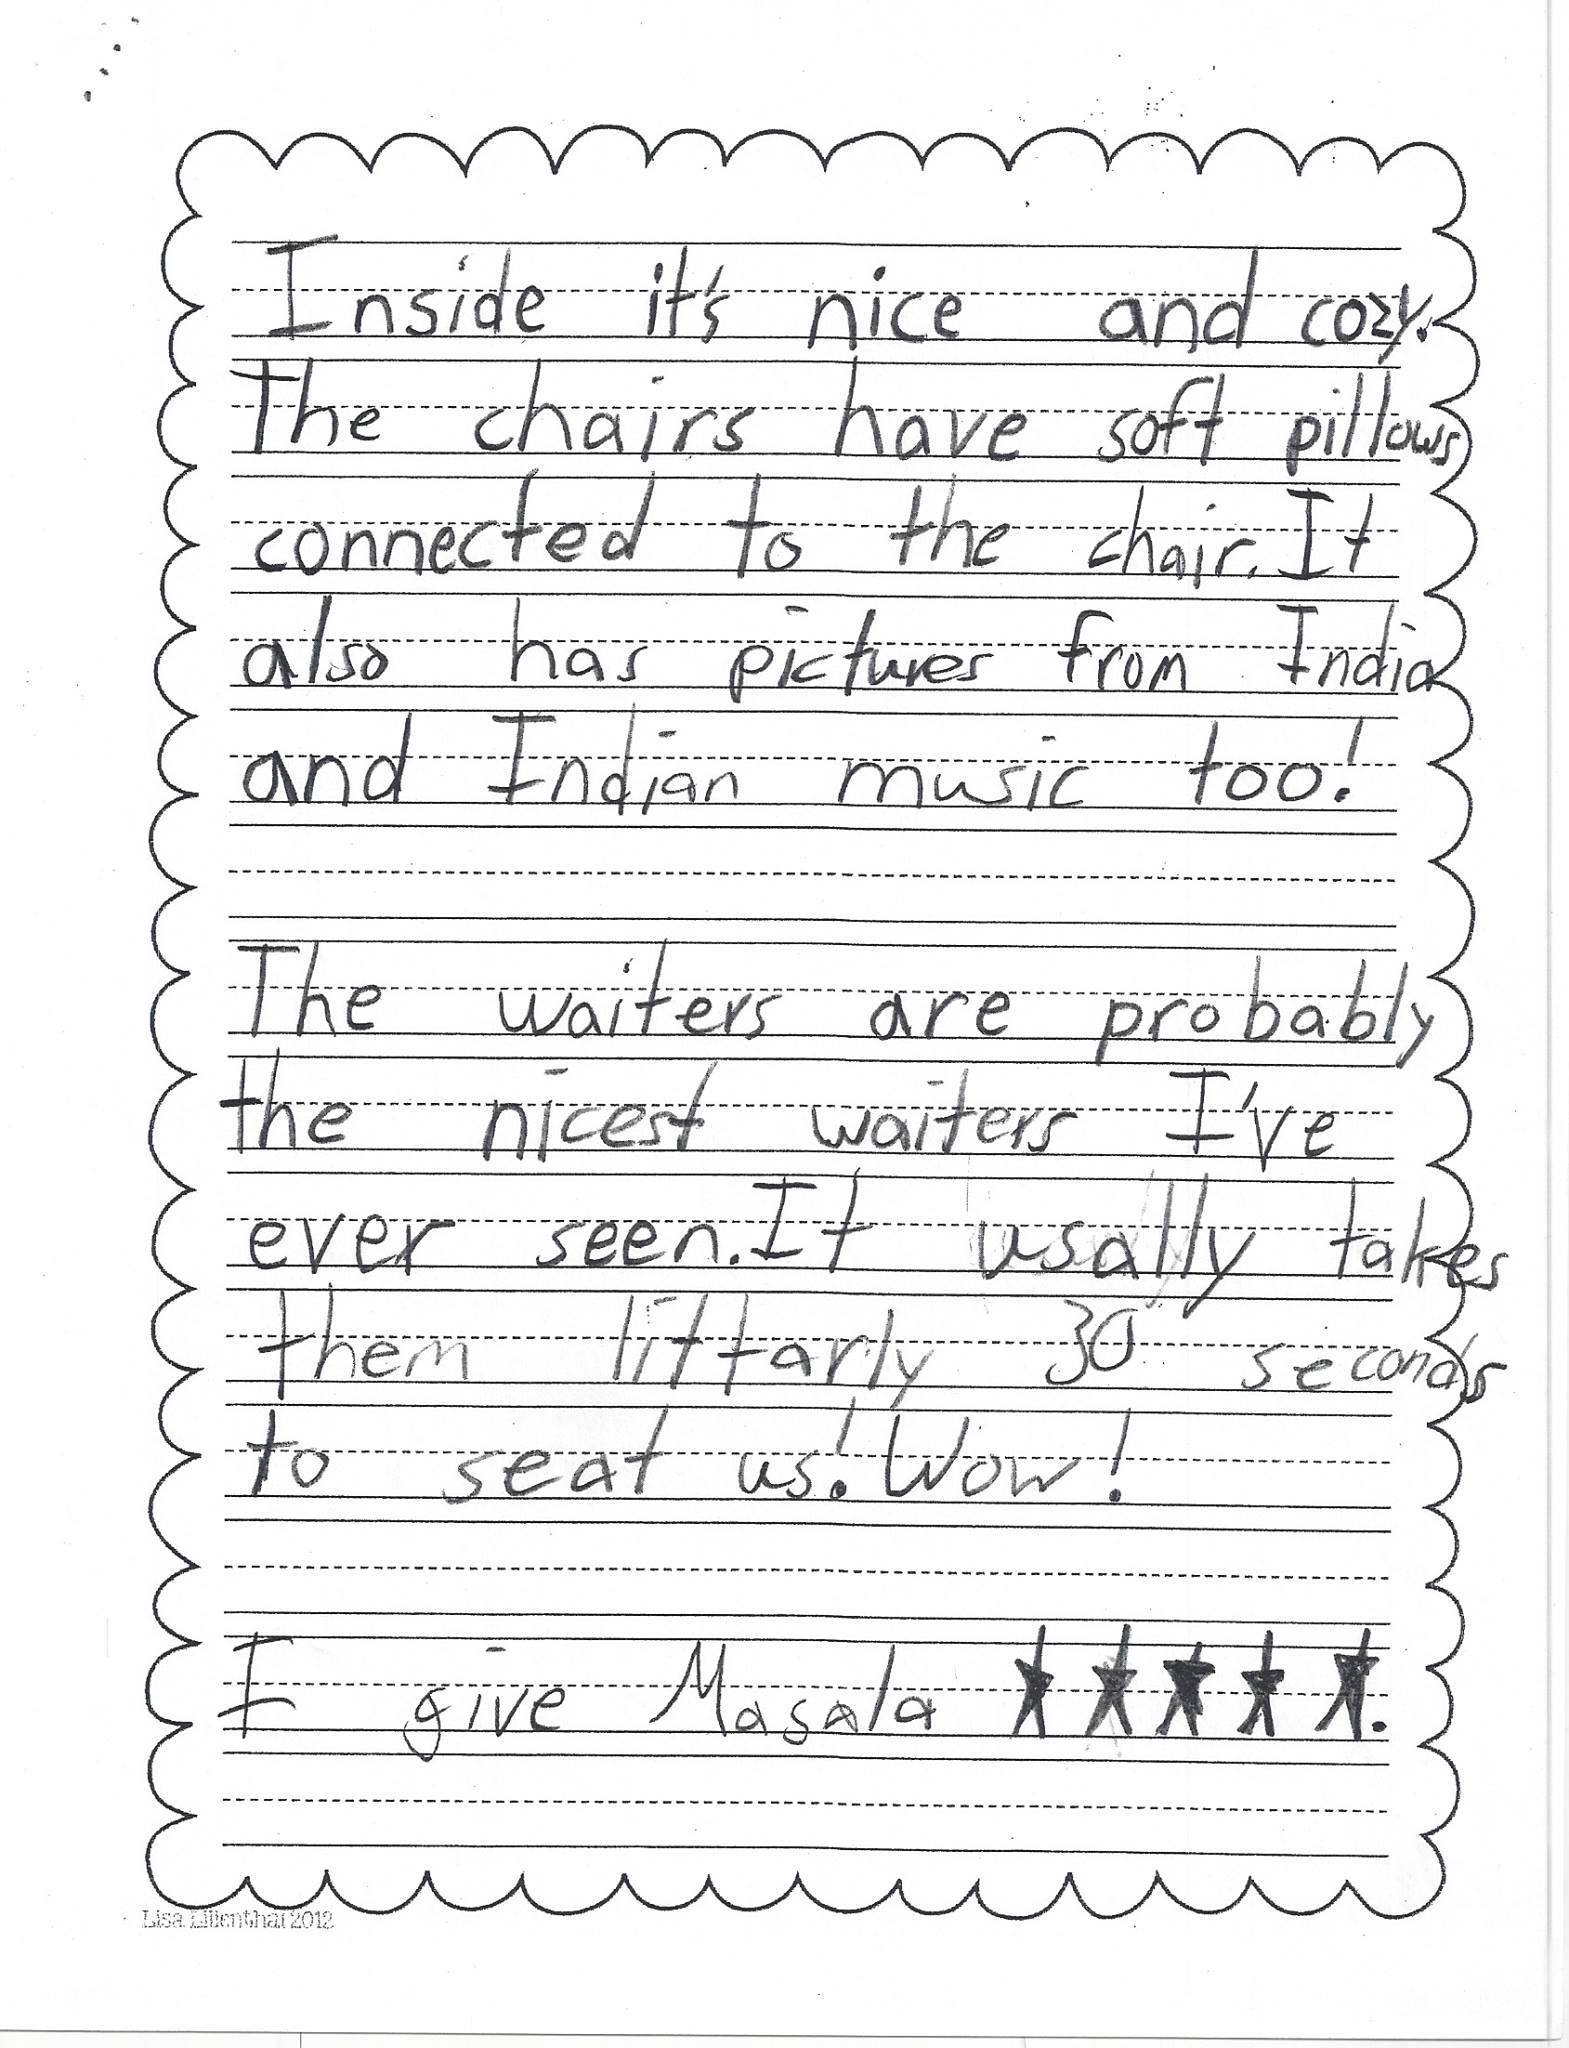 Inside it's nice and cozy.
The chairs have soft pillows
connected to the chair. It
also has pictures from India
and Indian music too!
The waiters are probably
the nicest waiters I've
ever seen. It usally takes
them littarly 30 seconds
to seat us! Wow!
I give Masala ★★★★★.
Lisa Lilienthal 2012